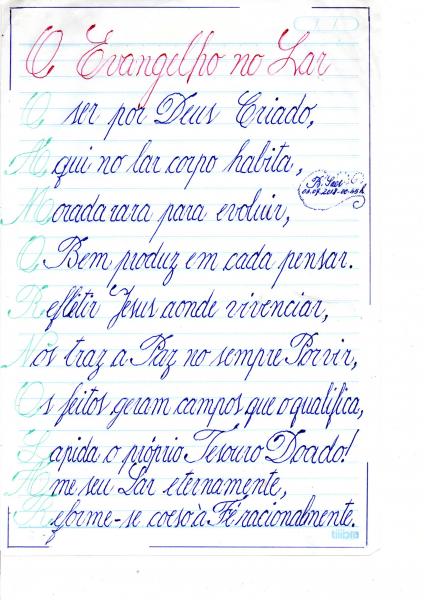 O Evangelho no Lar
O ser por Deus Criado,
Aqui no lar corpo habita,
Morada rara para evoluir,
O Bem produz em cada pensar.
Refletir Jesus aonde vivenciar,
Nos traz a Paz no sempre Porvir,
Os feitos geram campos que o qualifica,
Lapida o próprio Tesouro Doado!
Ame seu Lar eternamente,
Reforme-se coeso à Fé racionalmente.
tilibra